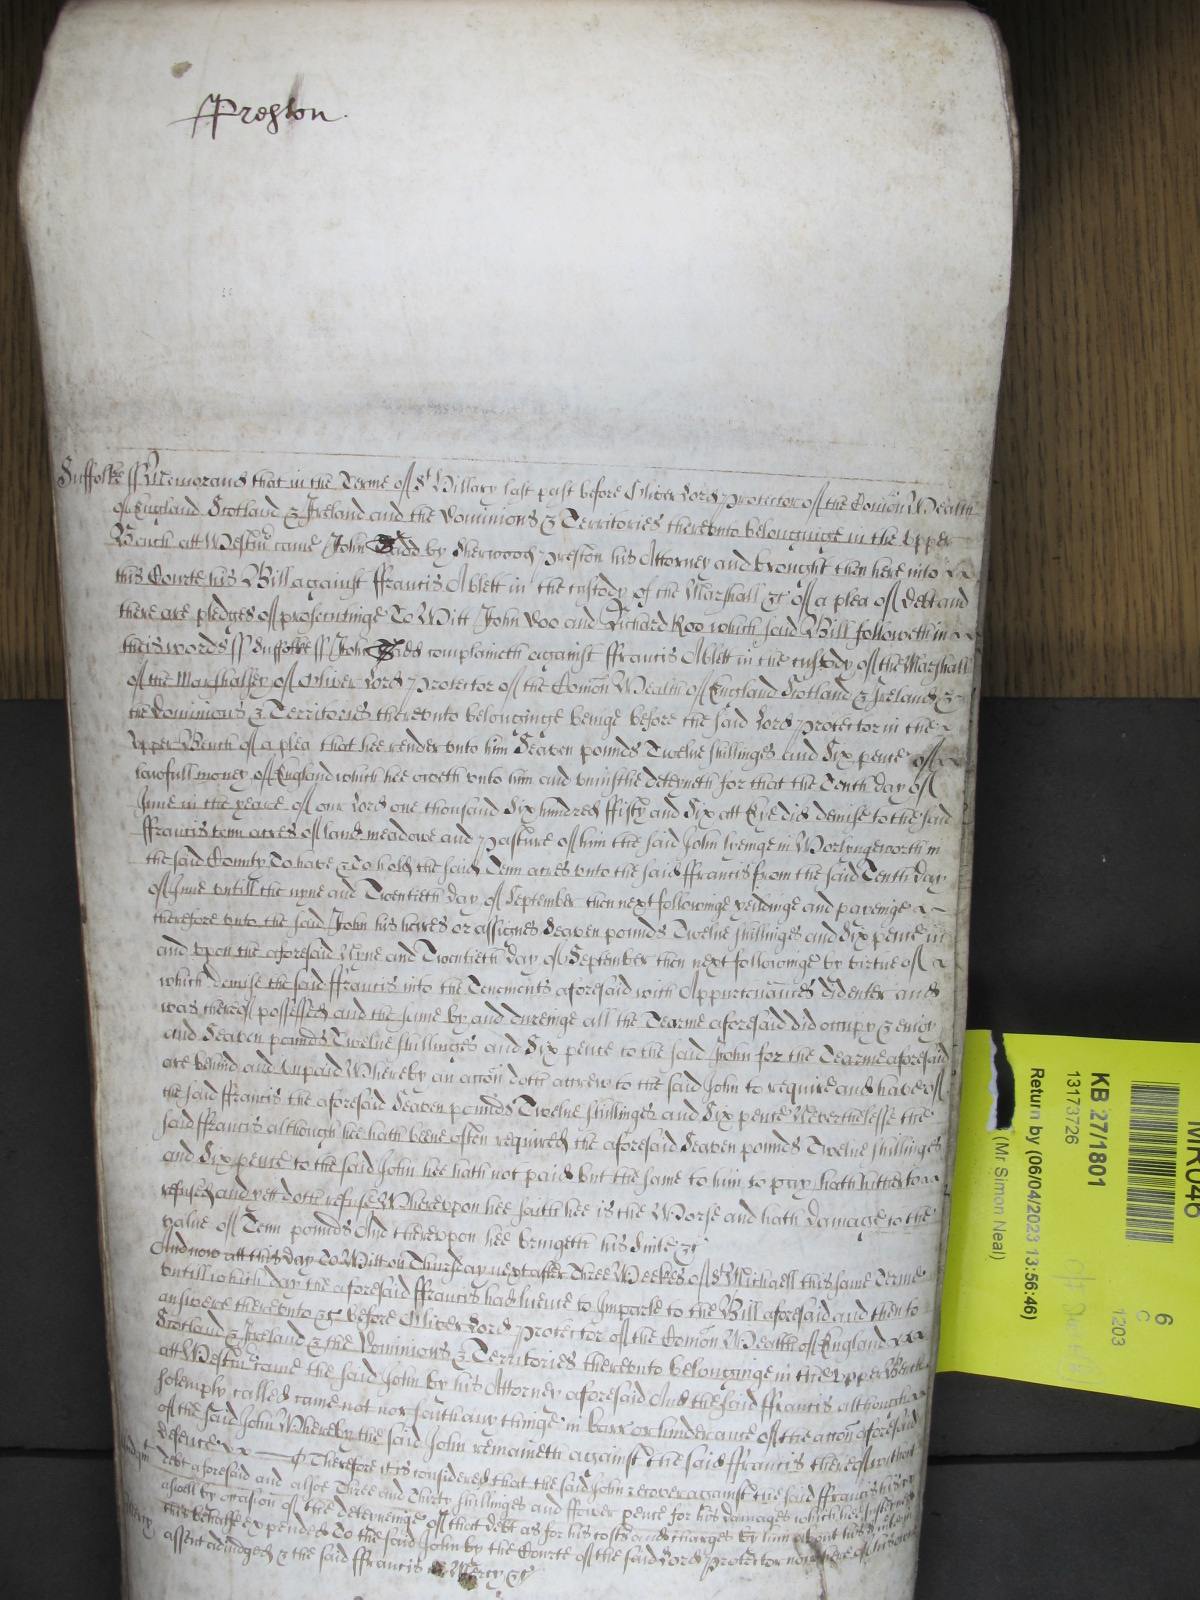 Preston.
Suffolke ss Memorand that in the Terme of St Hillary last past before Oliver Lord Protector of the Comon Wealth
of England Scotland & Ireland and the Dominions & Territories therevnto belonginge in the vpper
Bench att Westmr came John by Sherwood Preston his Attorney and brought then here into
this Courte his Bill against ffrancis Ablett in the custody of the Marshall &c of a plea of debt and
there are pledges of prosecutinge To Witt John Doo and Richard Roo which said Bill followeth in
theis words ss Suffolke ss John complaineth against ffrancis Ablett in the custody of the Marshall
of the Marshalsey of Oliver Lord Protector of the Comon Wealth of England Scotland & Ireland &
the Dominions & Territories therevnto belonginge beinge before the said Lord Protector in the
vpper Bench of a plea that hee render vnto him Seaven pounds Twelve shillinges and Six pence of
lawfull money of England which hee oweth vnto him and vniustlie deteyneth for that the Tenth day of
June in the yeare of our Lord one thousand Six hundred ffifty and Six att Eye did demise to the said
ffrancis tenn acres of land meadowe and Pasture of him the said John lyeinge in Worlyngeworth in
the said County To have & To hold the said Tenn acres vnto the said ffrancis from the said Tenth day
of June vntill the nyne and Twentieth day of September then next followinge yeildinge and payeinge
therefore vnto the said John his heires or assignes Seaven pounds Twelve shillinges and Six pence in
and vpon the aforesaid Nyne and Twentieth day of September then next followinge by virtue of
which demise the said ffrancis into the Tenements aforesaid with Appurtenances did enter and
was thereof possessed and the same by and dureinge all the Tearme aforesaid did occupy & enioy
and Seaven pounds Twelve shillinges and Six pence to the said John for the Tearme aforesaid
are behind and vnpaid Whereby an accon doth accrew to the said John to require and have of
the said ffrancis the aforesaid Seaven pounds Twelve shillinges and Six pence Neverthelesse the
said ffrancis although hee hath beene often required the aforesaid Seaven pounds Twelve shillinges
and Six pence to the said John hee hath not paid but the same to him to pay hath hitherto
refused and yett doth refuse Wherevpon hee saith hee is the Worse and hath damage to the
value of Tenn pounds And therevpon hee bringeth his Suite &c
And now att this day To Witt on Thursday next after Three Weekes of St Michaell this same Terme
vntill which day the aforesaid ffrancis had licence to Imparle to the Bill aforesaid and then to
answere therevnto &c before Oliver Lord Protector of the Comon Wealth of England
Scotland & Ireland & the Dominions & Territories therevnto belonginge in the vpper Bench
att Westmr came the said John by his Attorney aforesaid And the said ffrancis although
solemply called came not nor saith any thinge in barr or hinderance of the accon aforesaid
of the said John Whereby the said John remaineth against the said ffrancis thereof without
defence Therefore it is considered that the said John recover against the said ffrancis his
debt aforesaid and alsoe Three and Thirty shillinges and ffower pence for his damages which hee
aswell by occasion of the deteyneinge of that debt as for his costs and charges by him about his Suite in
this behalfe expended To the said John by the Courte of the said Lord Protector now here of
assent adiudged & the said ffrancis in Mercy &c
KB 27/1801
13173726
Return by (06/04/2023 13:56:46)
(Mr Simon Neal)
MR046
6
C
1203